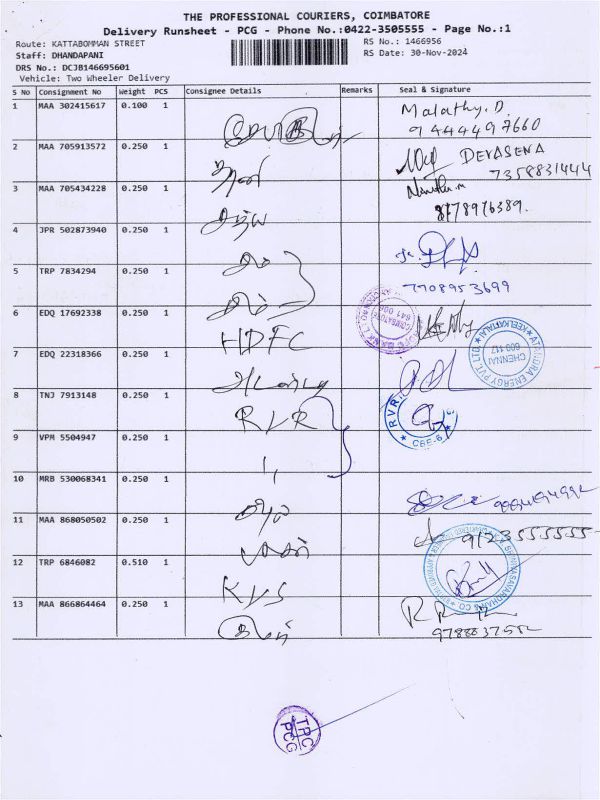 THE PROFESSIONAL COURIERS, COIMBATORE
Delivery Runsheet - PCG - Phone No.:0422-3505555 - Page No.:1
Route: KATTABOMMAN STREET
RS No.: 1466956
Staff: DHANDAPANI
RS Date: 30-Nov-2024
DRS No.: DCJB146695601
Vehicle: Two Wheeler Delivery
S No Consignment No Weight PCS Consignee Details Remarks Seal & Signature
1 MAA 302415617 0.100 1 Malathy.D
9444497660
2 MAA 705913572 0.250 1 DEVASENA
7358831444
3 MAA 705434228 0.250 1
8778976389.
4 JPR 502873940 0.250 1
5 TRP 7834294 0.250 1 7708953699
6 EDQ 17692338 0.250 1 HDFC
7 EDQ 22318366 0.250 1
ATANDRA ENERGY PVT LTD KEELKATTALAI
CHENNAI
600 117
8 TNJ 7913148 0.250 1 RVR
R.V.R.
CBE-6
9 VPM 5504947 0.250 1 "
10 MRB 530068341 0.250 1
11 MAA 868050502 0.250 1 9123555555
12 TRP 6846082 0.510 1 KVS
13 MAA 866864464 0.250 1
9788037552
TPC
PCG